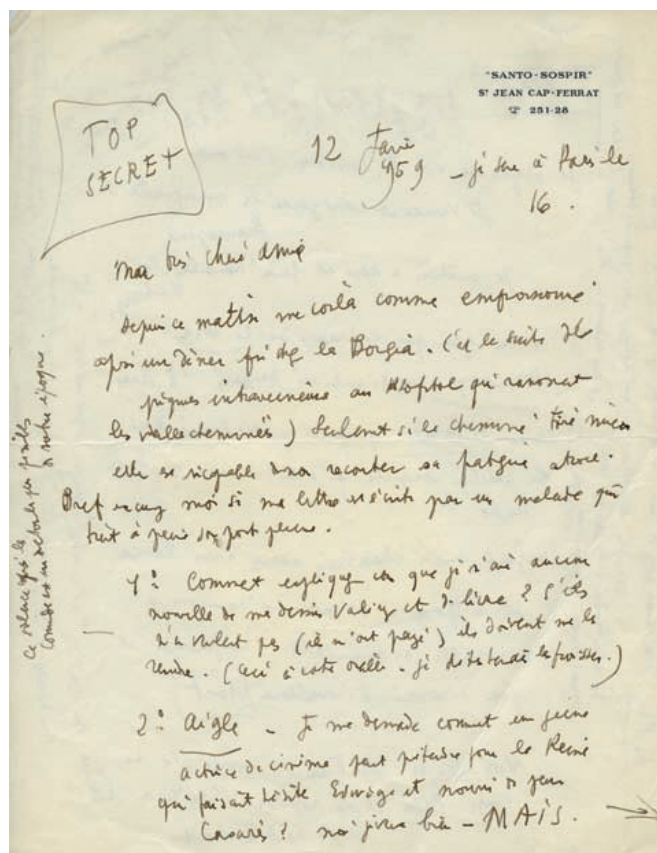 "SANTO-SOSPIR"
St JEAN CAP-FERRAT
☎ 251-28
TOP
SECRET
12
959 - je sere à Paris le
16.
Ma très chère amie
depuis ce matin me voilà comme empoisonné
après un dîner chez la Borgia. (c'est la suite de
piqures intraveineuse au qui ramonat
les vieille cheminées) Seulement si la cheminé tire mieux
elle est incapable de raconter sa fatigue atroce.
Bref excusez moi si ma lettre est écrite par un malade qui
tient à peine son porte plume.
1º: Comment expliquez vous que je n'ai aucune
nouvelle de me dernier Valéry et du livre ? S'ils
n'en veulent pas (ils m'ont payé) ils doivent me le
rendre. (Ceci à votre oreille. je déteste les .)
2º: Aigle - Je me demande comment une jeune
actrice de cinéma peut prétendre jouer la Reine
qui faisait hésiter Edwige et nourri de peur
Casarès ? moi j'ivre bien - MAIS.
Ce silence après la
est un des toute petites
de notre époque.